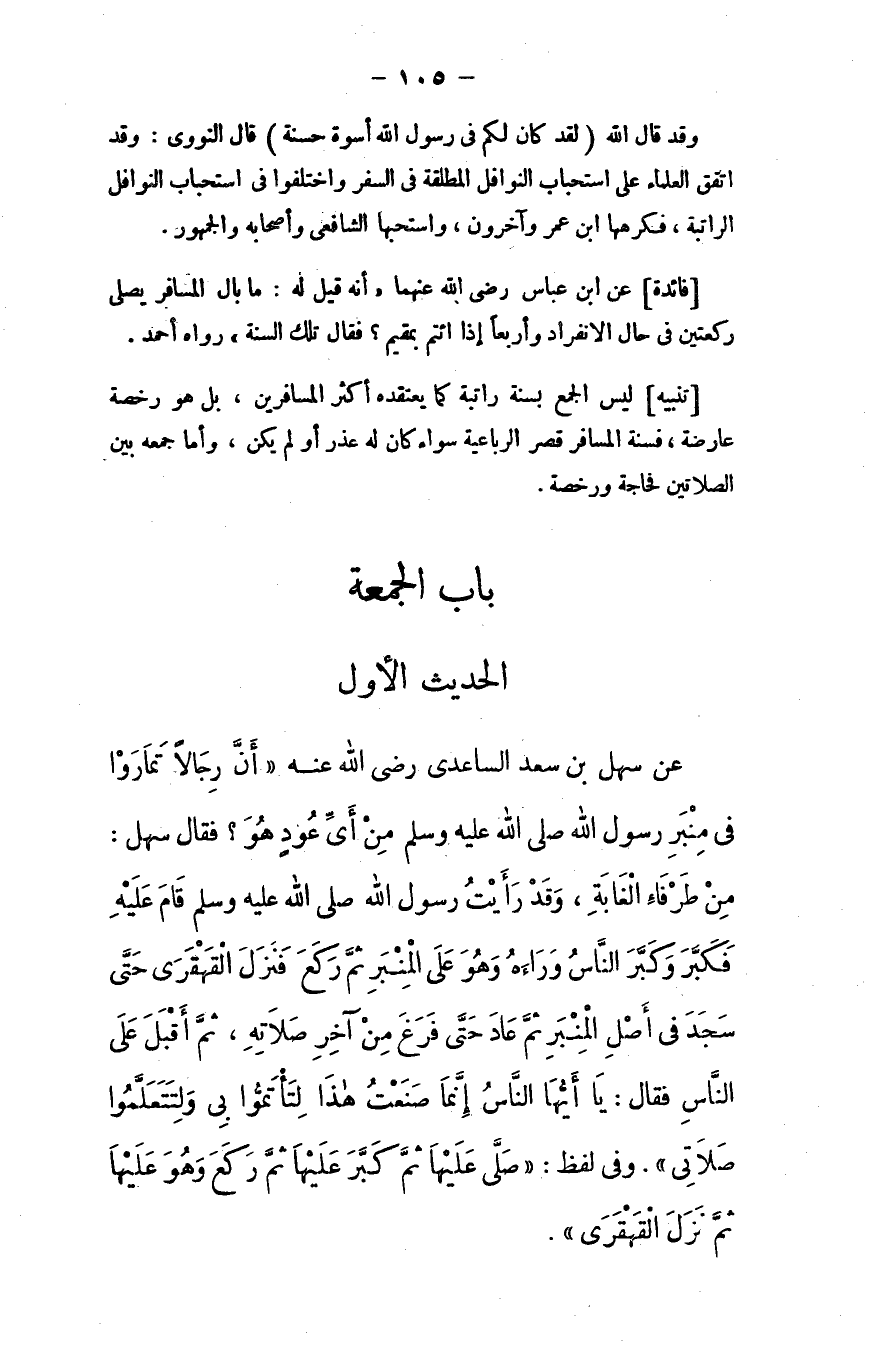 – ١٠٥ –
وقد قال الله ( لقد كان لكم فى رسول الله أسوة حسنة ) قال النووى : وقد
اتفق العلماء على استحباب النوافل المطلقة فى السفر واختلفوا فى استحباب النوافل
الراتبة ، فكرهها ابن عمر وآخرون ، واستحبها الشافعى وأصحابه والجمهور .
[فائدة] عن ابن عباس رضى الله عنهما « أنه قيل له : ما بال المسافر يصلى
ركعتين فى حال الانفراد وأربعاً إذا ائتم بمقيم ؟ فقال تلك السنة » رواه أحمد .
[تنبيه] ليس الجمع بسنة راتبة كما يعتقده أكثر المسافرين ، بل هو رخصة
عارضة ، فسنة المسافر قصر الرباعية سواء كان له عذر أو لم يكن ، وأما جمعه بين
الصلاتين فحاجة ورخصة .
باب الجمعة
الحديث الأول
عن سهل بن سعد الساعدى رضى الله عنه « أَنَّ رِجَالاً تَمَارَوْا
فى مِنْبَرِ رسول الله صلى الله عليه وسلم مِنْ أَىِّ عُودٍ هُوَ ؟ فقال سهل :
مِنْ طَرْفَاءِ الْغَابَةِ ، وَقَدْ رَأَيْتُ رسول الله صلى الله عليه وسلم قَامَ عَلَيْهِ
فَكَبَّرَ وَكَبَّرَ النَّاسُ وَرَاءَهُ وَهُوَ عَلَى الْمِنْبَرِ ثُمَّ رَكَعَ فَنَزَلَ الْقَهْقَرَى حَتَّى
سَجَدَ فى أَصْلِ الْمِنْبَرِ ثُمَّ عَادَ حَتَّى فَرَغَ مِنْ آخِرِ صَلَاتِهِ ، ثُمَّ أَقْبَلَ عَلَى
النَّاسِ فقال : يَا أَيُّهَا النَّاسُ إِنَّمَا صَنَعْتُ هٰذَا لِتَأْتَمُّوا بِى وَلِتَتَعَلَّمُوا
صَلَاتِى » . وفى لفظ : « صَلَّى عَلَيْهَا ثُمَّ كَبَّرَ عَلَيْهَا ثُمَّ رَكَعَ وَهُوَ عَلَيْهَا
ثُمَّ نَزَلَ الْقَهْقَرَى » .